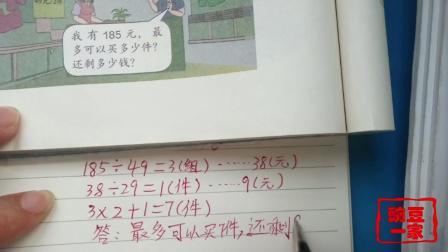 我有185元，最
多可以买多少件？
还剩多少钱？
185÷49=3(组)……38(元)
38÷29=1(件)……9(元)
3×2+1=7(件)
答：最多可以买7件，还剩
豌豆
一家